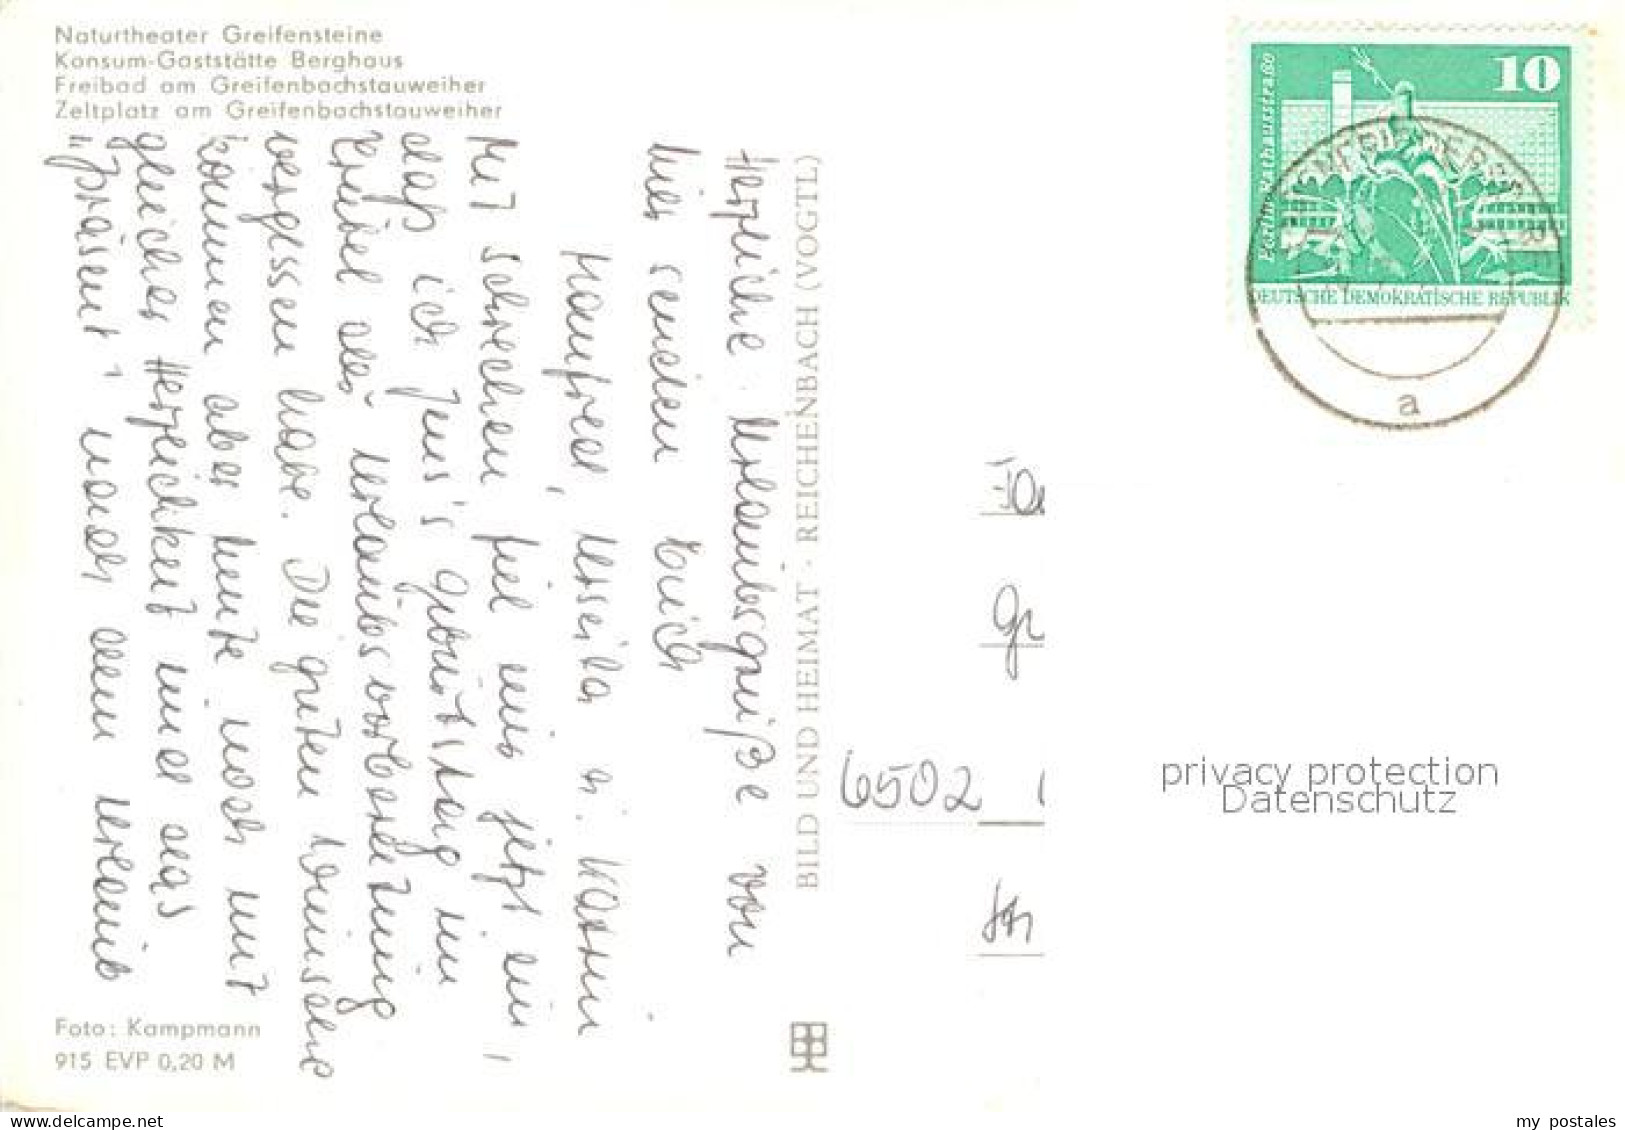 Naturtheater Greifensteine
Konsum-Gaststätte Berghaus
Freibad am Greifenbachstauweiher
Zeltplatz am Greifenbachstauweiher
Herzliche Urlaubsgrüße von
hier senden Euch
Manfred, Ursula u. Katrin
Mit Schrecken fiel mir jetzt ein,
daß ich Jens's Geburtstag im
Trubel der Urlaubsvorbereitung
vergessen habe. Die guten Wünsche
kommen aber heute noch mit
gleicher Herzlichkeit und das
"Präsent" nach dem Urlaub
Foto: Kampmann
915 EVP 0,20 M
BILD UND HEIMAT · REICHENBACH (VOGTL)
10
Berlin, Rathausstraße
DEUTSCHE DEMOKRATISCHE REPUBLIK
a
6502
privacy protection
Datenschutz
delcampe.net
my_postales